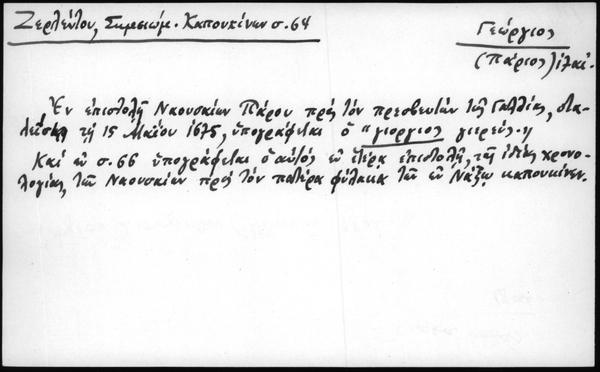 Ζερλέντου, Σημειώμ. Καπουκίνων σ. 64
Γεώργιος
(Πάριος)
Ἐν ἐπιστολῇ Ναουσαίων Πάρου πρὸς τὸν πρεσβευτὴν τῆς Γαλλίας, στα-
λείσῃ τῇ 15 Μαΐου 1675, ὑπογράφεται ὁ "γιοργιος γιερεύς."
Καὶ ἐν σ. 66 ὑπογράφεται ὁ αὐτὸς ἐν ἑτέρᾳ ἐπιστολῇ, τῆς ἰδίας χρονο-
λογίας, τῶν Ναουσαίων πρὸς τὸν πατέρα φύλακα τῶν ἐν Νάξῳ καπουκίνων.